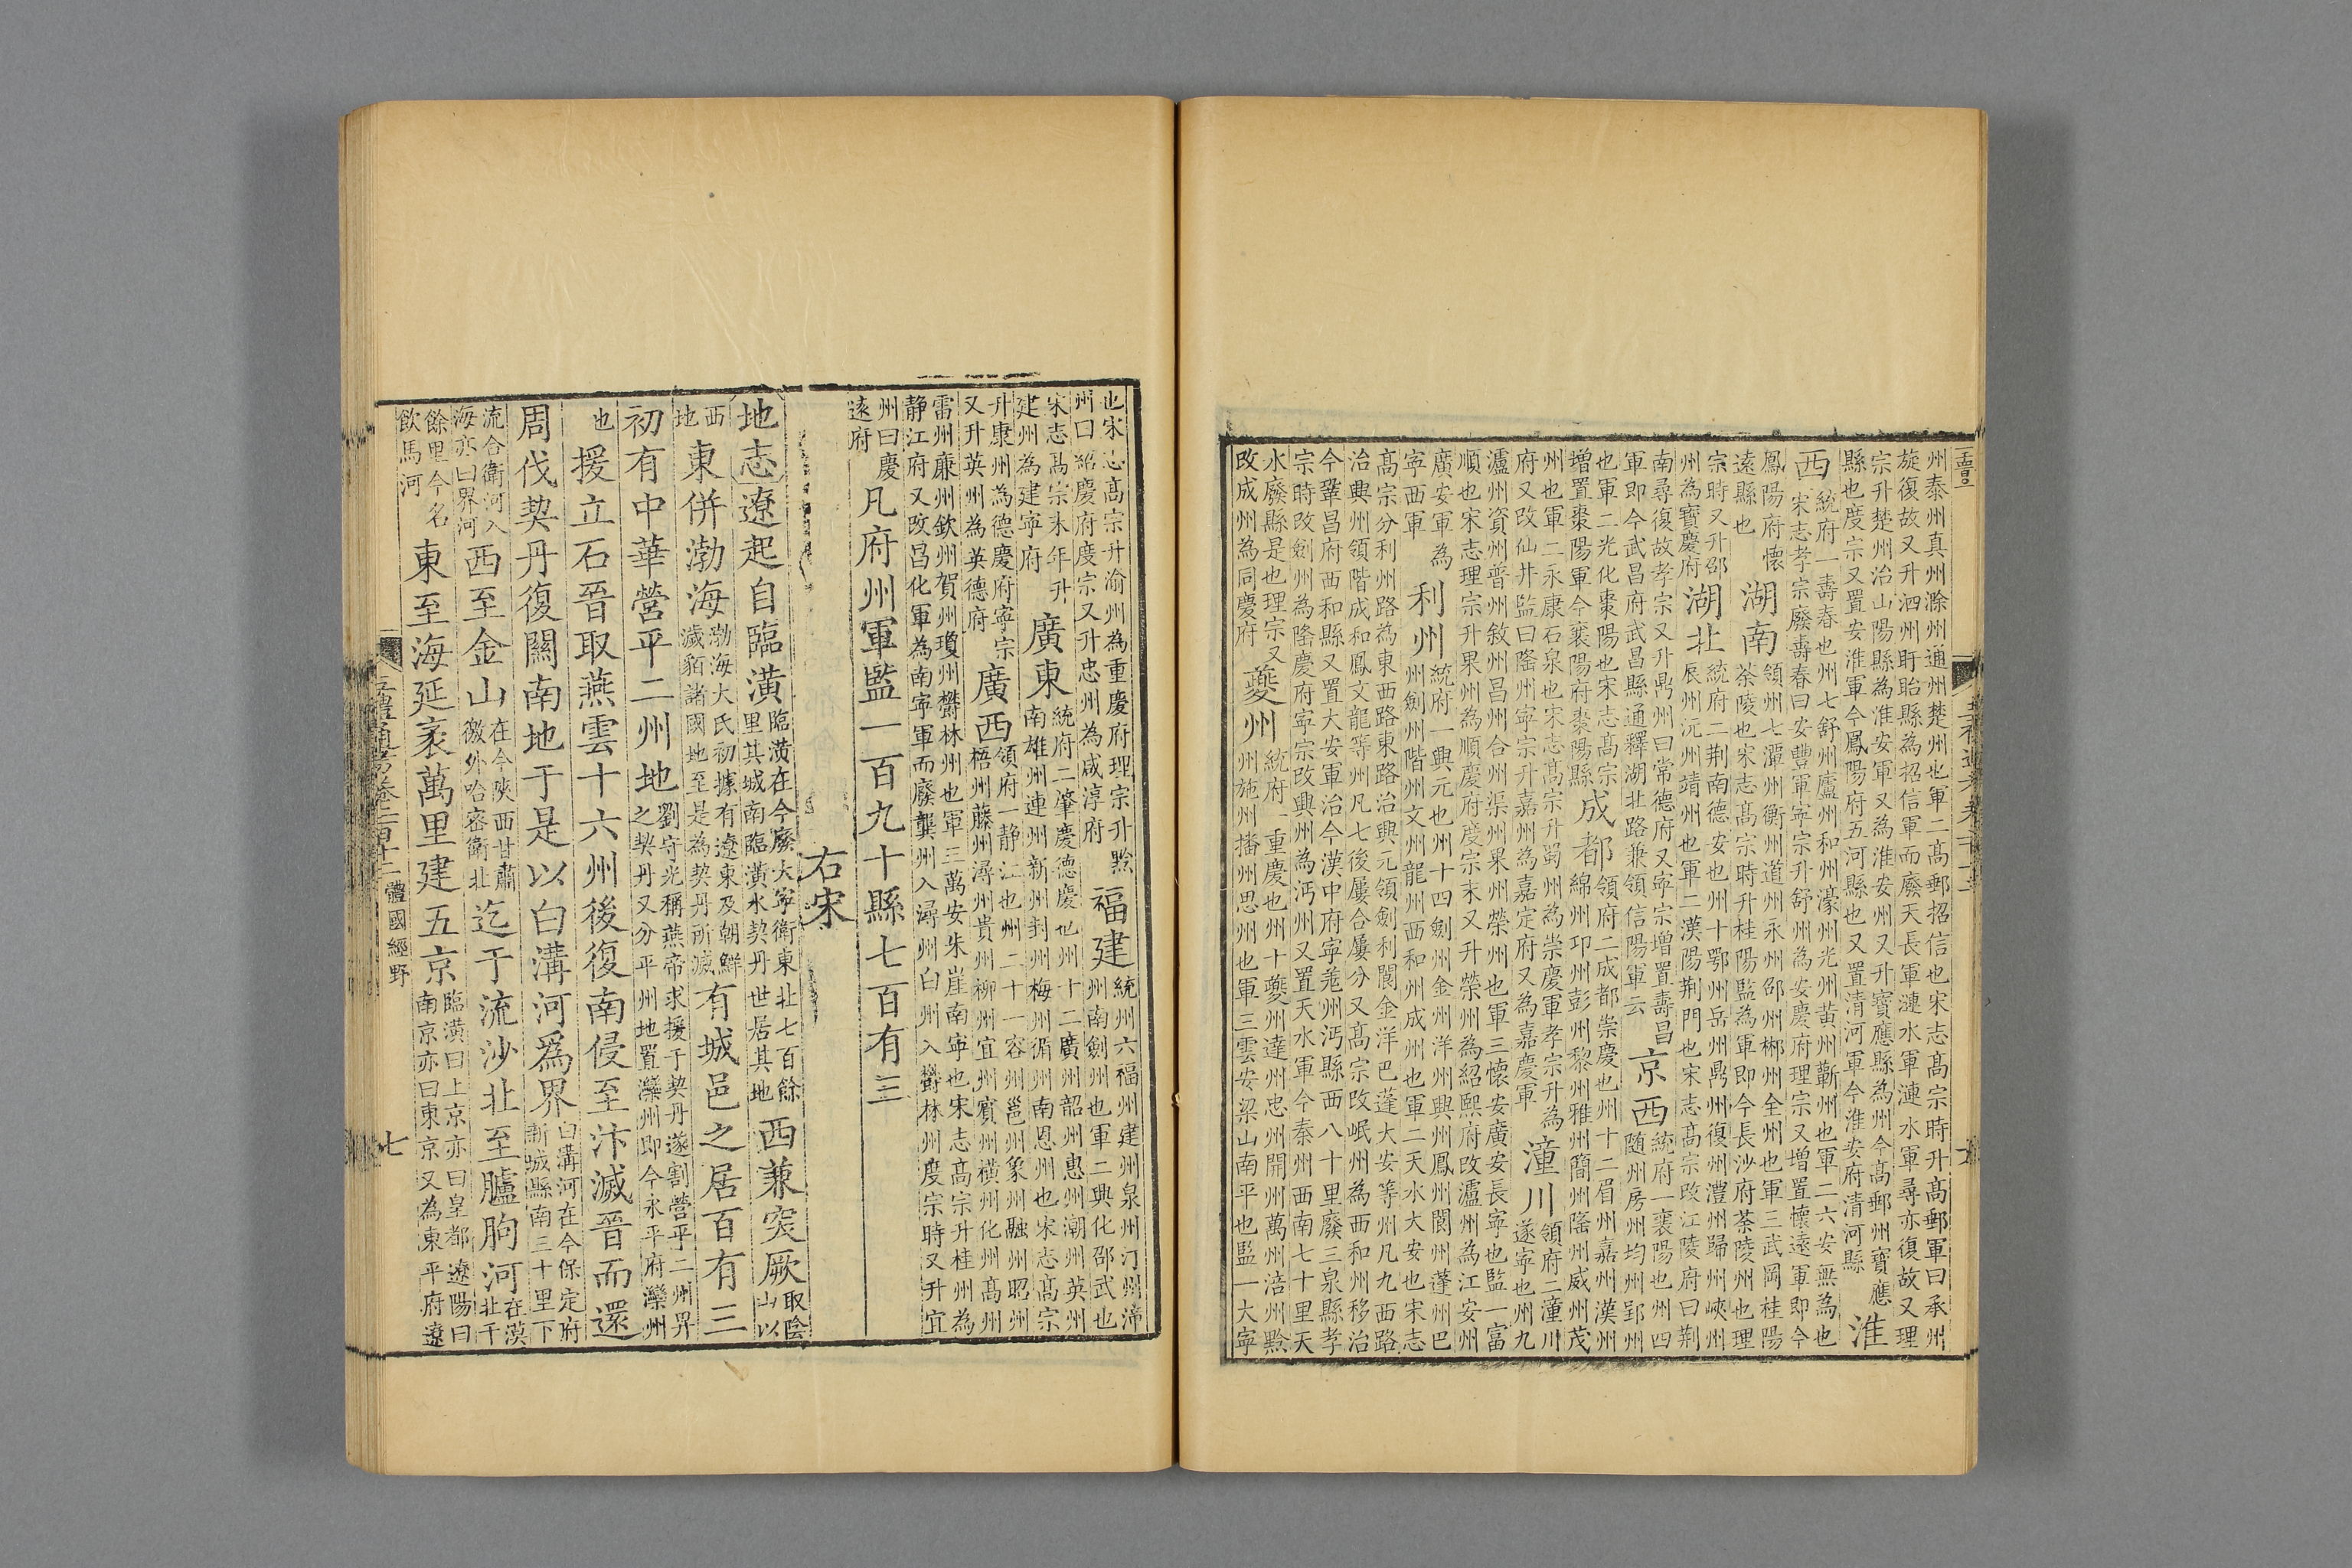 州泰州真州滁州通州楚州也軍二高郵招信也宋志高宗時升高郵軍曰承州
旋復故又升泗州盱眙縣為招信軍而廢天長軍漣水軍漣水軍尋亦復故又理
宗升楚州治山陽縣為淮安軍又為淮安州又升寶應縣為州今高郵州寶應
縣也度宗又置安淮軍今鳳陽府五河縣也又置清河軍今淮安府清河縣
淮
西
統府一壽春也州七舒州廬州和州濠州光州黃州蘄州也軍二六安無為也
宋志孝宗廢壽春曰安豐軍寧宗升舒州為安慶府理宗又增置懷遠軍即今
鳳陽府懷
遠縣也
湖南
領州七潭州衡州道州永州邵州郴州全州也軍三武岡桂陽
茶陵也宋志高宗時升桂陽監為軍即今長沙府茶陵州也理
宗時又升邵
州為寶慶府
湖北
統府二荊南德安也州十鄂州岳州鼎州復州澧州歸州峽州
辰州沅州靖州也軍二漢陽荊門也宋志高宗改江陵府曰荊
南尋復故孝宗又升鼎州曰常德府又寧宗增置壽昌
軍即今武昌府武昌縣通釋湖北路兼領信陽軍云
京西
統府一襄陽也州四
随州房州均州郢州
也軍二光化棗陽也宋志高宗
增置棗陽軍今襄陽府棗陽縣
成都
領府二成都崇慶也州十二眉州嘉州漢州
綿州邛州彭州黎州雅州簡州隆州威州茂
州也軍二永康石泉也宋志高宗升蜀州為崇慶軍孝宗升為
府又改仙井監曰隆州寧宗升嘉州為嘉定府又為嘉慶軍
潼川
領府二潼川
遂寧也州九
瀘州資州普州敘州昌州合州渠州果州榮州也軍三懷安廣安長寧也監一富
順也宋志理宗升果州為順慶府度宗末又升榮州為紹熙府改瀘州為江安州
廣安軍為
寧西軍
利州
統府一興元也州十四劍州金州洋州興州鳳州閬州蓬州巴
州劍州階州文州龍州西和州成州也軍二天水大安也宋志
高宗分利州路為東西路東路治興元領劍利閬金洋巴蓬大安等州凡九西路
治興州領階成和鳳文龍等州凡七後屢合屢分又高宗改岷州為西和州移治
今鞏昌府西和縣又置大安軍治今漢中府寧羗州沔縣西八十里廢三泉縣孝
宗時改劍州為隆慶府寧宗改興州為沔州又置天水軍今秦州西南七十里天
水廢縣是也理宗又
改成州為同慶府
夔州
統府一重慶也州十夔州達州忠州開州萬州涪州黔
州施州播州思州也軍三雲安梁山南平也監一大寧
也宋志高宗升渝州為重慶府理宗升黔
州曰紹慶府度宗又升忠州為咸淳府
福建
統州六福州建州泉州汀州漳
州南劍州也軍二興化邵武也
宋志高宗末年升
建州為建寧府
廣東
統府二肇慶德慶也州十二廣州韶州惠州潮州英州
南雄州連州新州封州梅州循州南恩州也宋志高宗
升康州為德慶府寧宗
又升英州為英德府
廣西
領府一静江也州二十一容州邕州象州融州昭州
梧州藤州潯州貴州柳州宜州賓州橫州化州高州
雷州廉州欽州賀州瓊州欝林州也軍三萬安朱崖南寧也宋志高宗升桂州為
静江府又改昌化軍為南寧軍而廢龔州入潯州白州入欝林州度宗時又升宜
州曰慶
逺府
凡府州軍監一百九十縣七百有三
右宋
地志遼起自臨潢
臨潢在今廢大寧衛東北七百餘
里其城南臨潢水契丹世居其地
西兼突厥
取陰
山以
西
地
東併渤海
渤海大氏初據有遼東及朝鮮
濊貊諸國地至是為契丹所滅
有城邑之居百有三
初有中華營平二州地
劉守光稱燕帝求援于契丹遂割營平二州界
之契丹又分平州地置灤州即今永平府灤州
也
援立石晉取燕雲十六州後復南侵至汴滅晉而還
周伐契丹復關南地于是以白溝河為界
白溝河在今保定府
新城縣南三十里下
流合衛河入
海亦曰界河
西至金山
在今陝西甘肅
徼外哈密衛北
迄于流沙北至臚朐河
在漠
北千
餘里今名
飲馬河
東至海延袤萬里建五京
臨潢曰上京亦曰皇都遼陽曰
南京亦曰東京又為東平府遼
五禮通考卷二百十二 體國經野
七